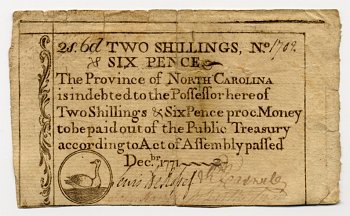 2s.6d TWO SHILLINGS, No.
& SIX PENCE
The Province of NORTH CAROLINA
is indebted to the Possessor hereof
Two Shillings & Six Pence proc. Money
to be paid out of the Public Treasury
according to Act of Assembly passed
Decbr. 1771